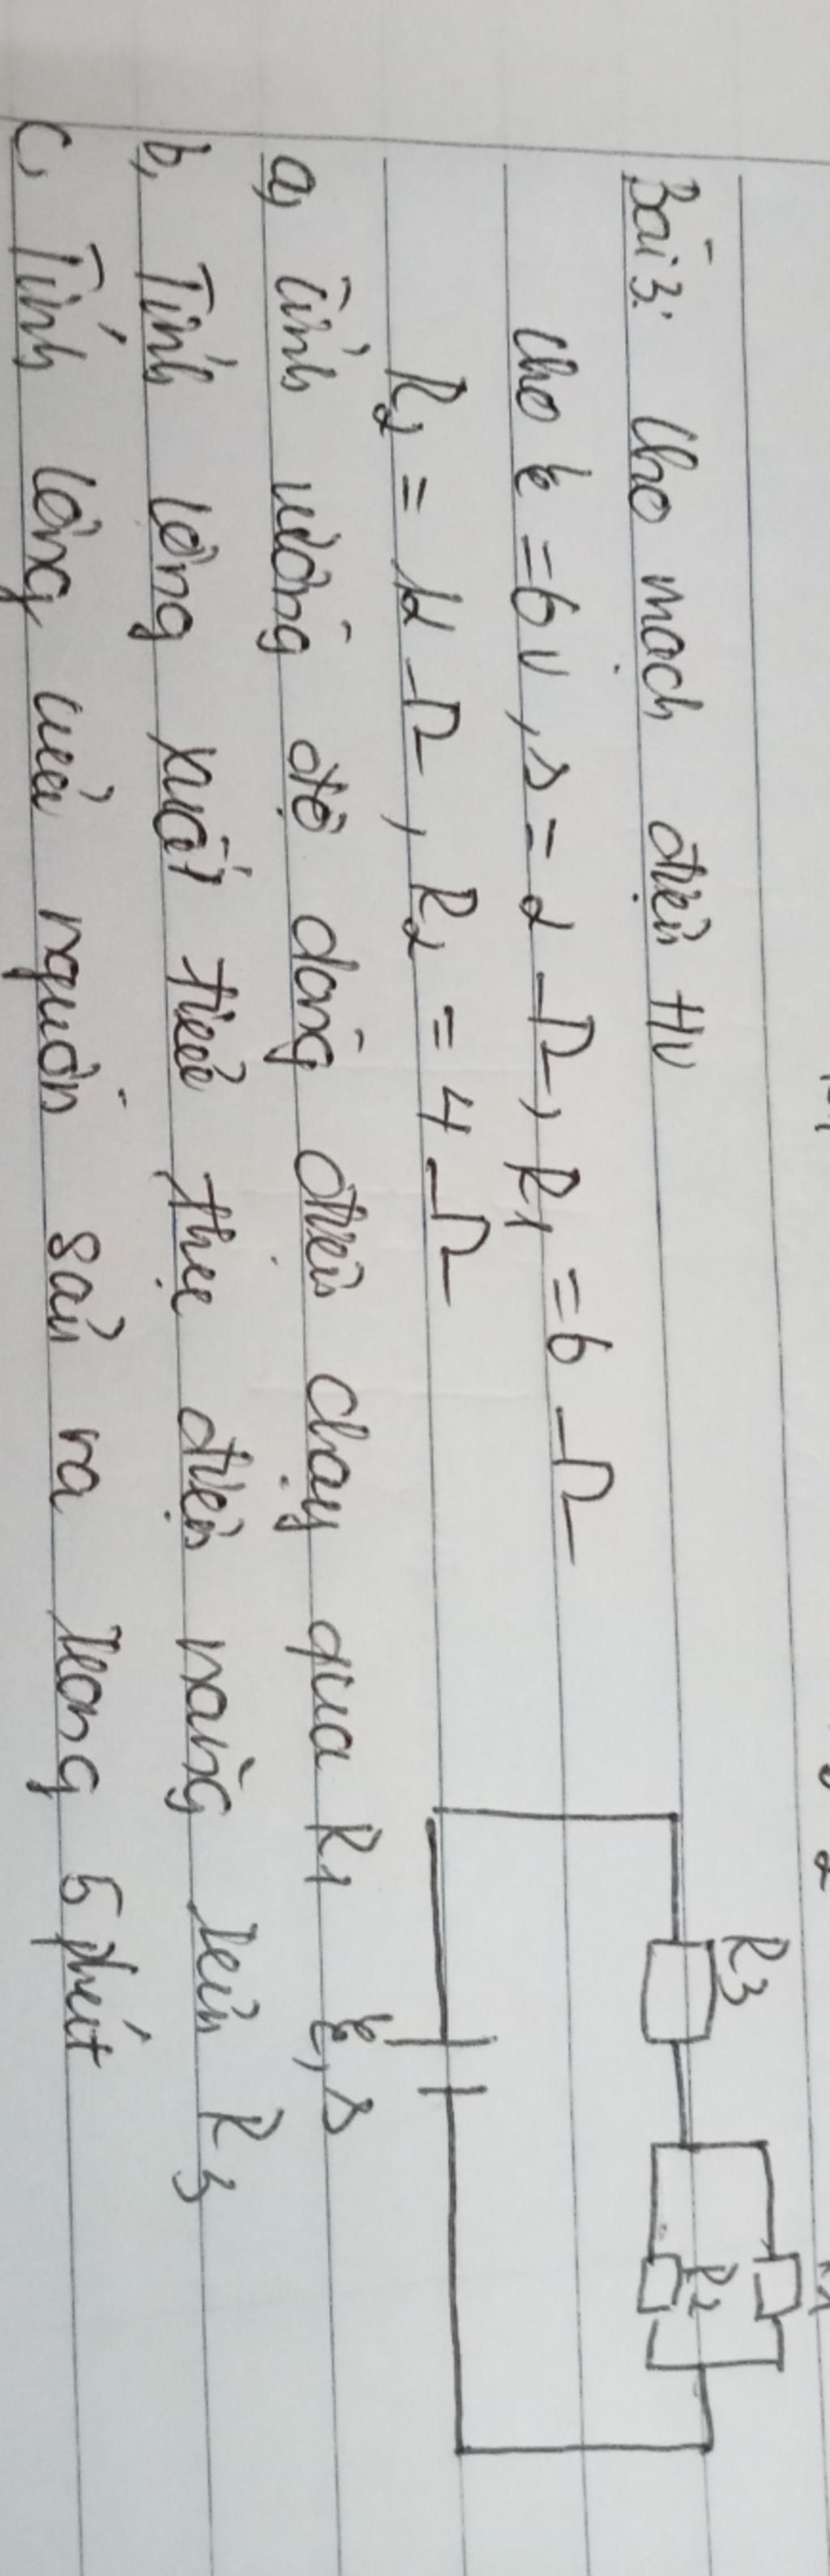 Bài 3: Cho mạch điện HV
Cho ξ = 6V, r = 2 Ω, R1 = 6 Ω
R2 = 12 Ω, R2 = 4 Ω
a, Tính cường độ dòng điện chạy qua R1
b, Tính công xuất tiêu thụ điện năng trên R3
c, Tính công của nguồn sản ra trong 5 phút
R3
R2
ξ, r